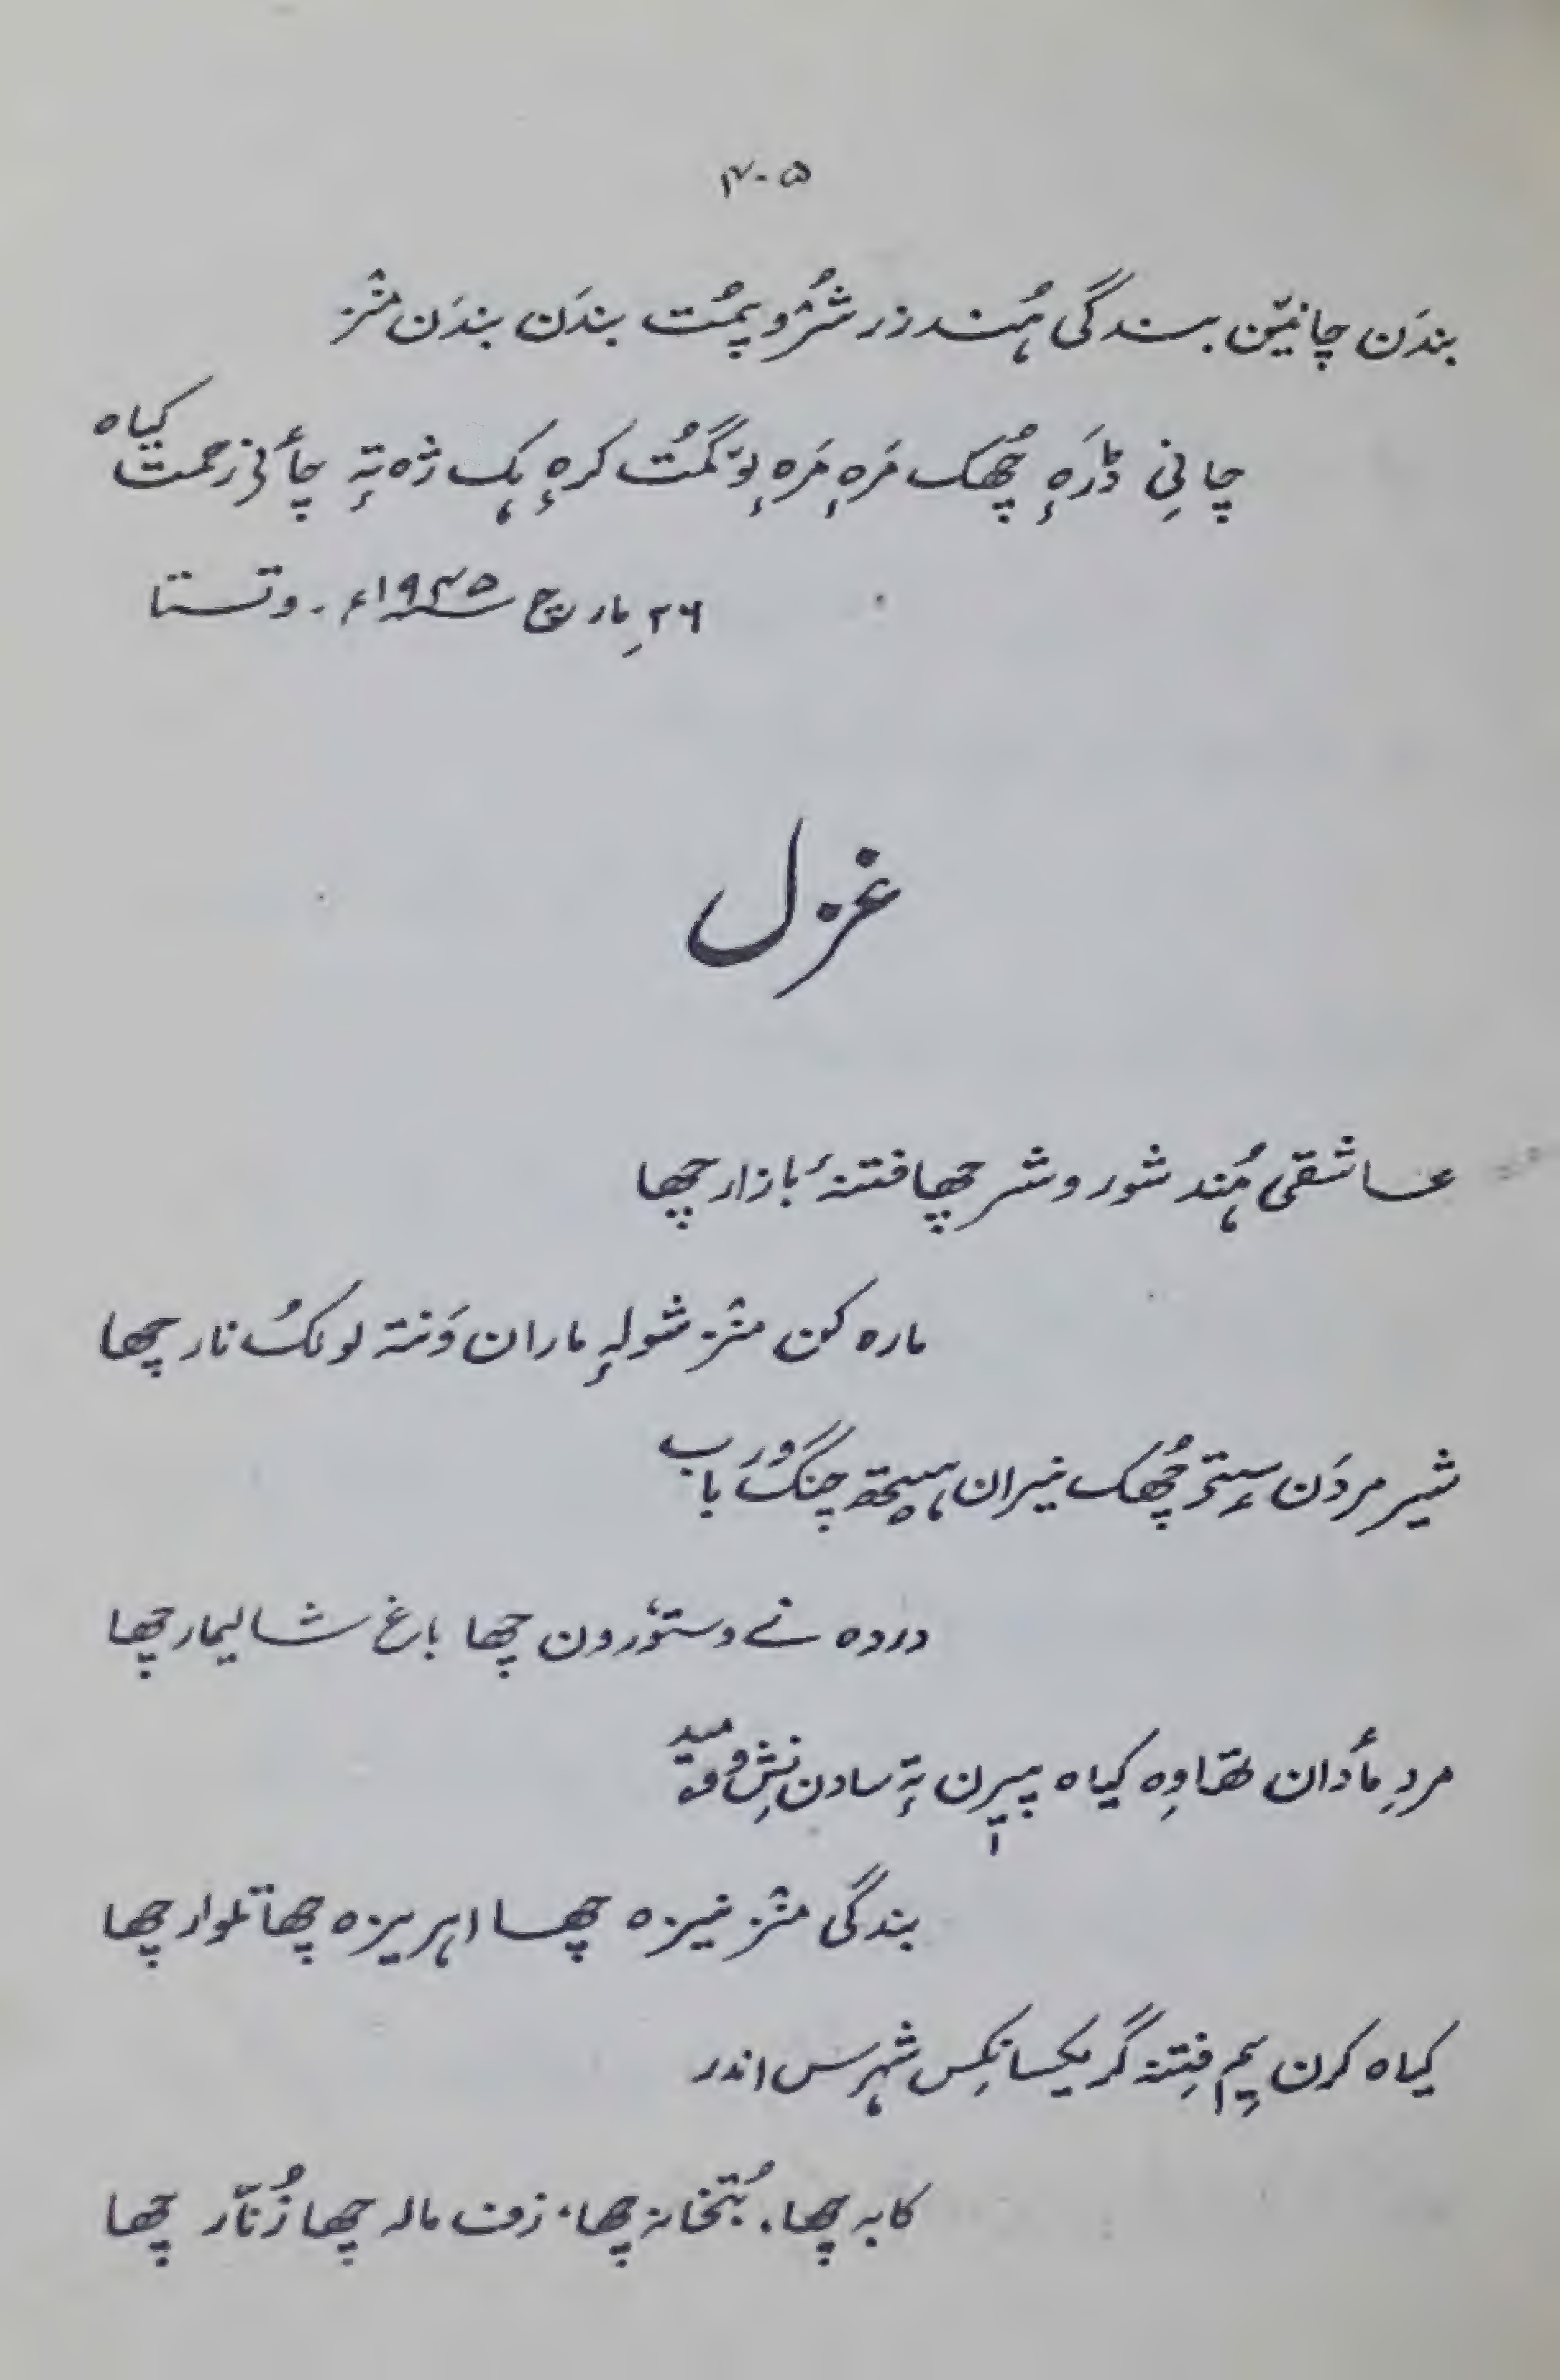 ۴۰۵
بندَن چانیٚن بندگی ہُند زر شرُوپمُت بندَن بندَن منٛز
چانِی ڈرَٕہ چُھک مَرٕہ مَرٕہ یوٚ گمُت کرٕہ ہک ژہ تہٕ چأنی رحمت کیاہ
۲۶ مارچ ۱۹۴۵ء - وتستا
غزل
عاشقی ہُند شور و شر چھا فتنۂ بازار چھا
مارہ کن منٛز شولہٕ ماران وَنتہ لولکُ نار چھا
شیر مردَن سٟتؠ چُھک نیران ہیتھ چنگ و رَباب
دردہ نے دستوٗر ون چھا باغ شالیمار چھا
مردِ مأدان تھاوِہ کیاہ پیٖرن تہٕ سادن نِش وۄمید
بندگی منٛز نیزہ چھا ابریزہ چھا تلوار چھا
کیاہ کرن یِم فِتنہ گر یکسانکِس شہرس اندر
کابہ چھا، بُتخانہ چھا، زف مالہ چھا زُنّار چھا